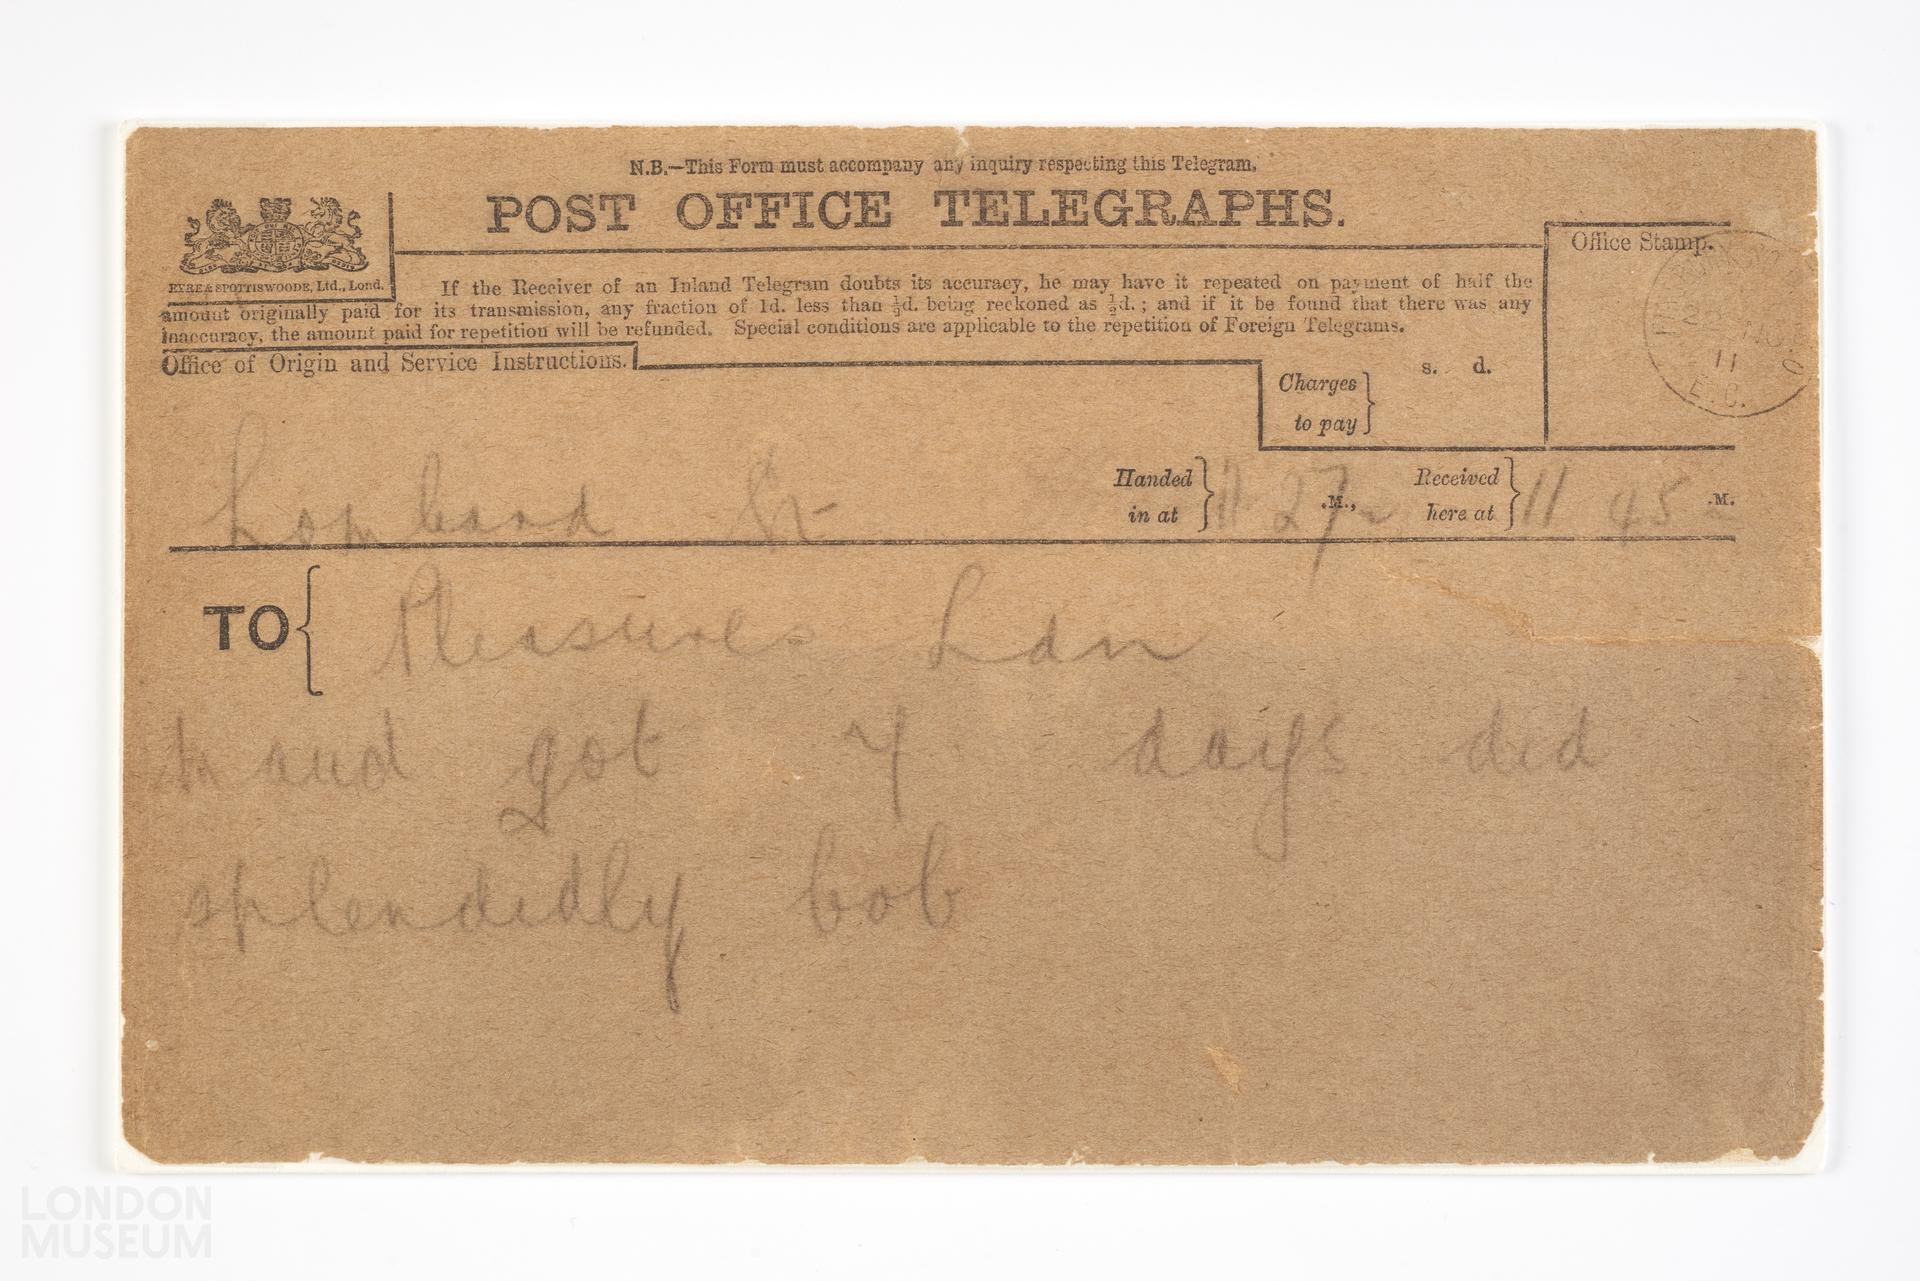 N.B.—This Form must accompany any inquiry respecting this Telegram.
POST OFFICE TELEGRAPHS.
EYRE & SPOTTISWOODE, Ltd., Lond.
If the Receiver of an Inland Telegram doubts its accuracy, he may have it repeated on payment of half the
amount originally paid for its transmission, any fraction of 1d. less than ½d. being reckoned as ½d.; and if it be found that there was any
inaccuracy, the amount paid for repetition will be refunded. Special conditions are applicable to the repetition of Foreign Telegrams.
Office Stamp.
22 NO
11
E.C.
Office of Origin and Service Instructions.
Charges to pay} s. d.
Lombard St
Handed in at} 11 27 .M., Received here at} 11 45 .M.
TO { Pleasures Ldn
maud got 7 days did
splendidly bob
LONDON
MUSEUM